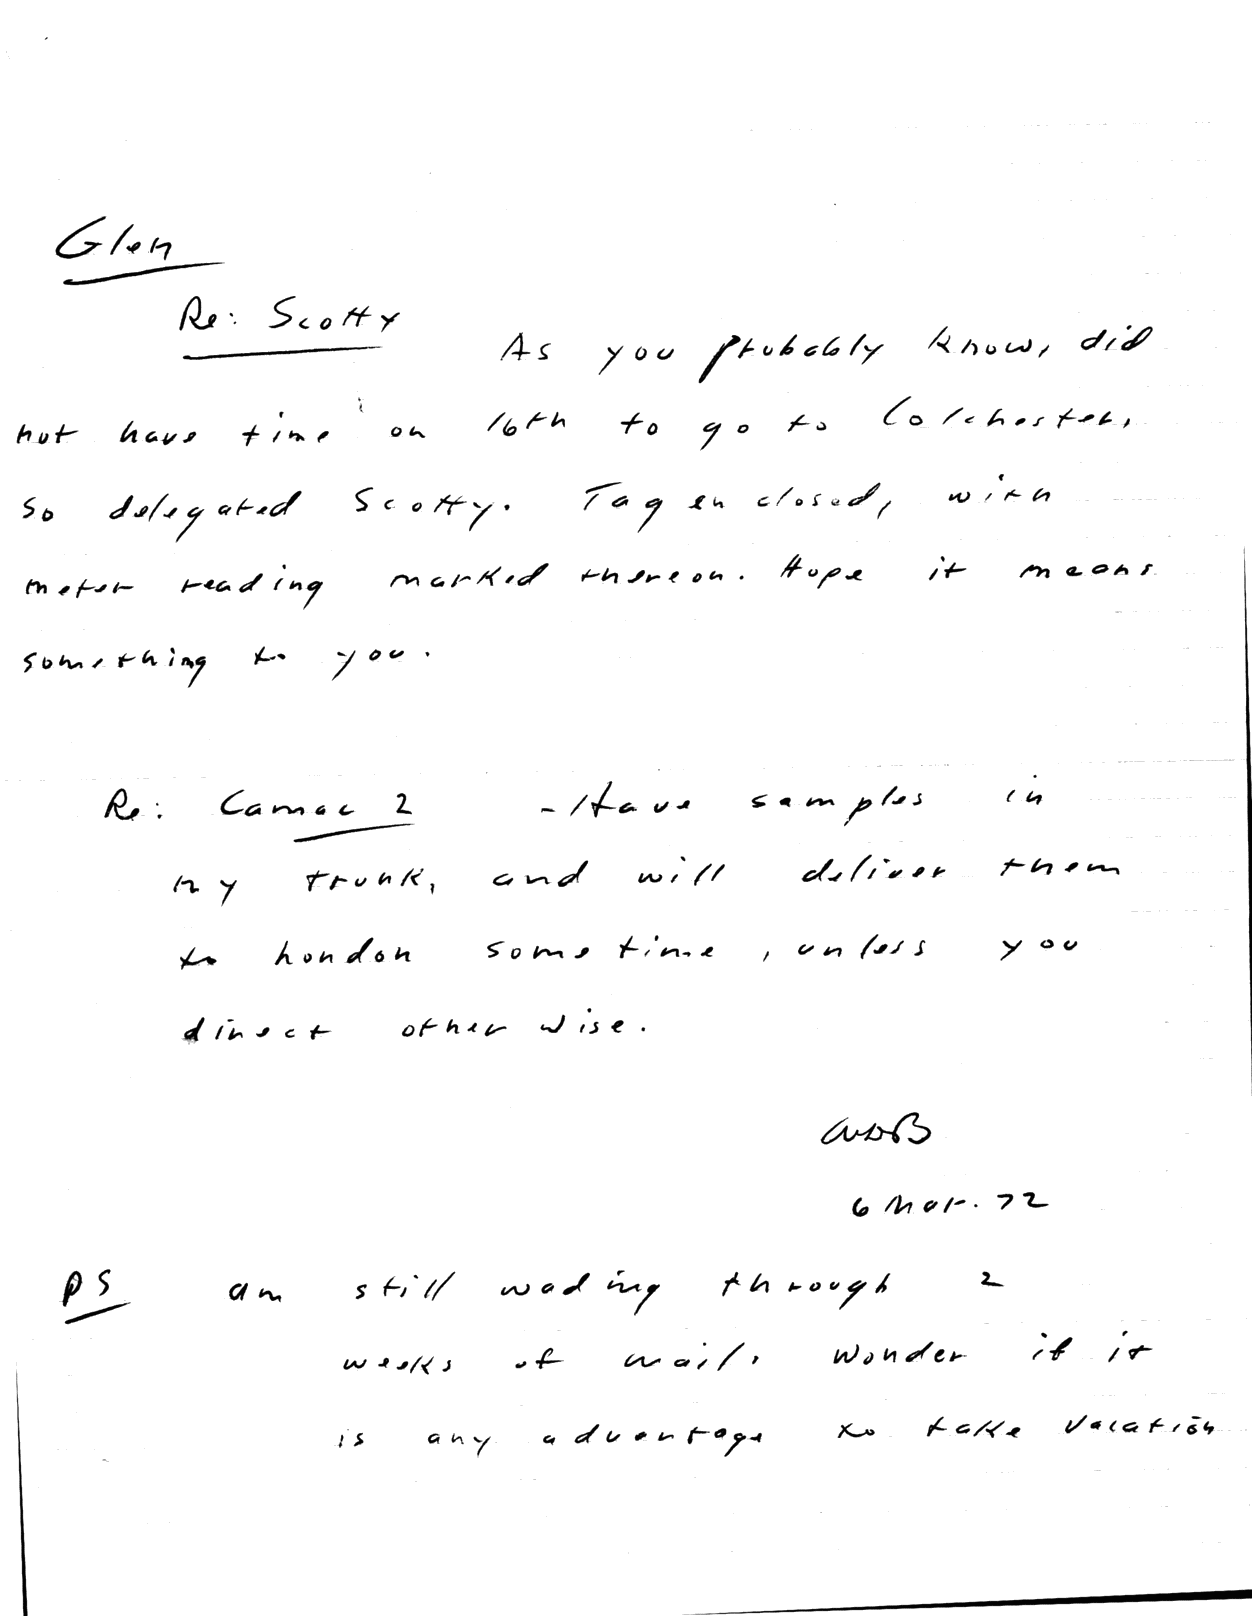 Glen
Re: Scotty
As you probably know, did
not have time on 16th to go to Colchester,
so delegated Scotty. Tag enclosed, with
meter reading marked thereon. Hope it means
something to you.
Re: Camac 2 - Have samples in
my trunk, and will deliver them
to London sometime, unless you
direct otherwise.
6 Mar. 72
PS am still wading through 2
weeks of mail. Wonder if it
is any advantage to take vacation